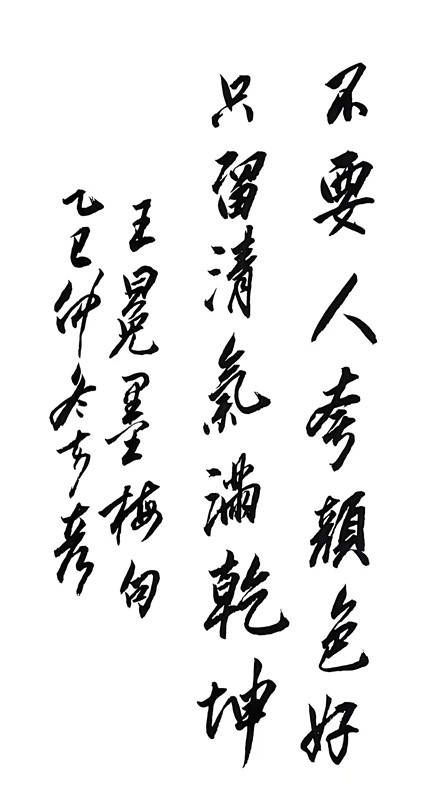 不要人夸顏色好
只留清氣滿乾坤
王冕墨梅句
乙巳仲冬彥